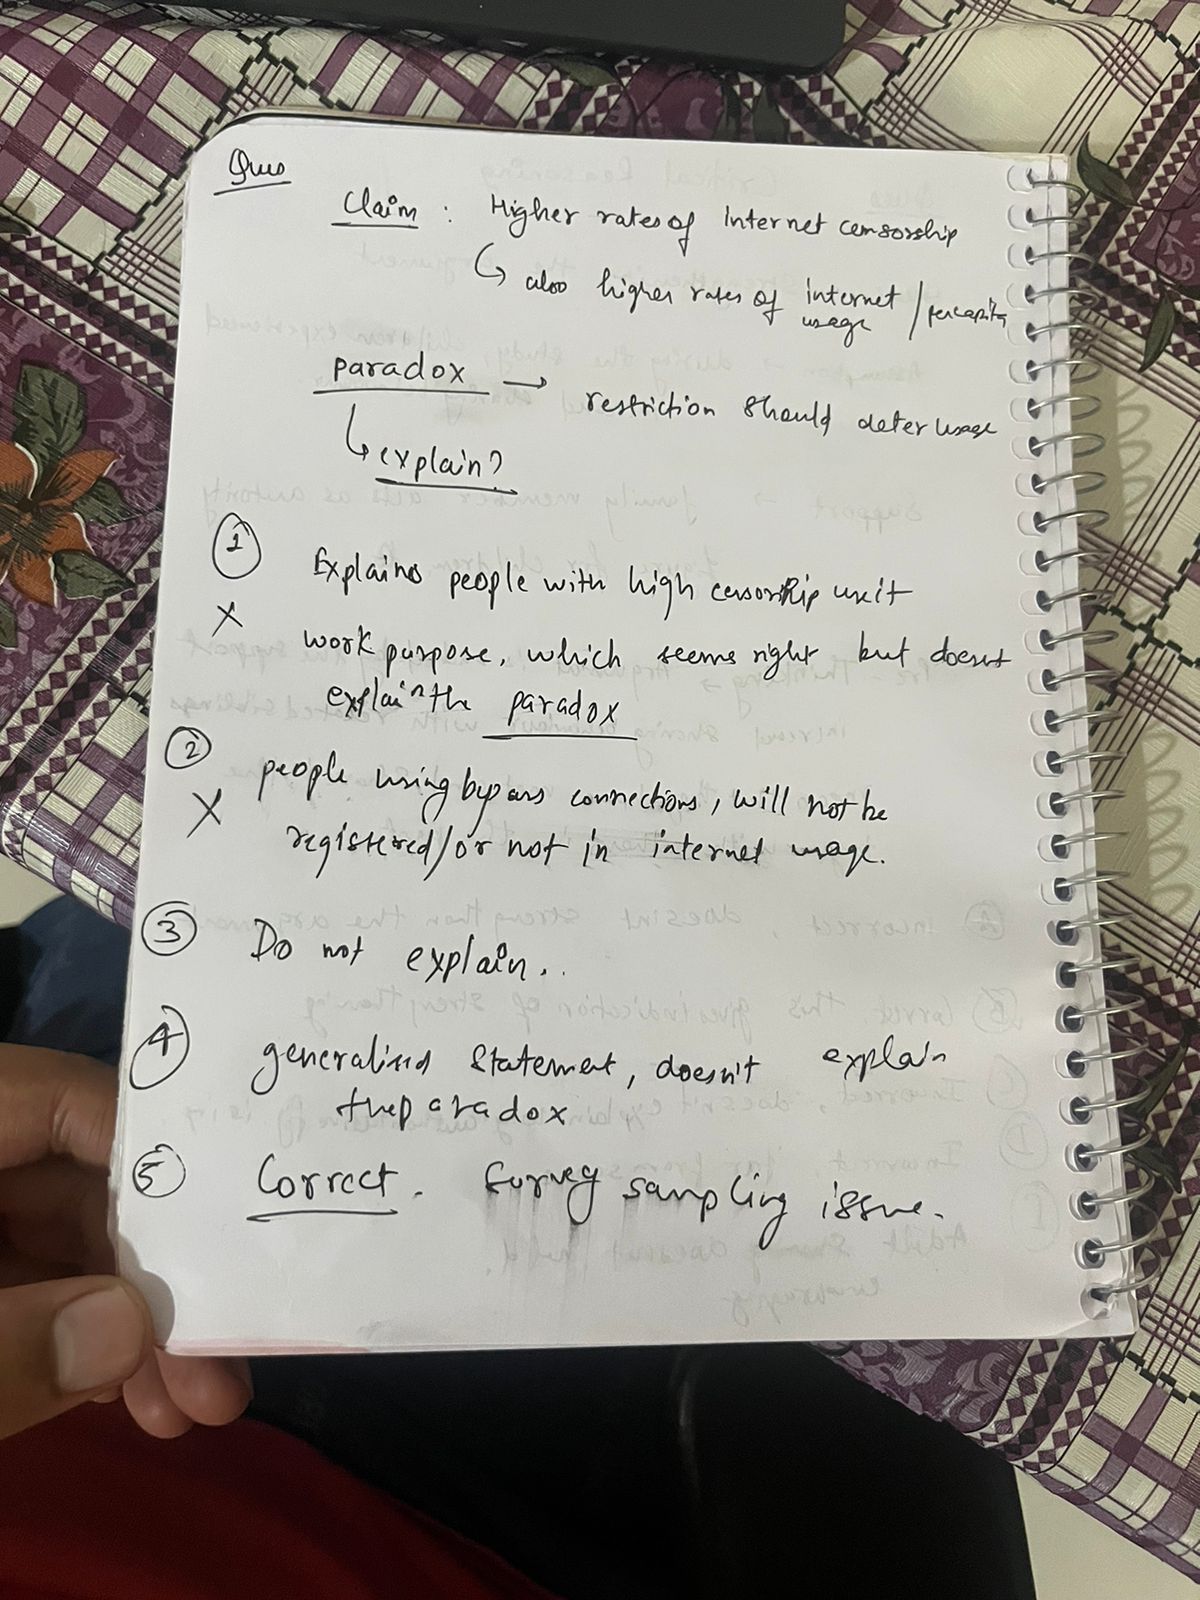 Ques
Claim : Higher rates of Internet censorship
also higher rates of internet usage / percapita
paradox → restriction should deter usage
explain?
1 Explains people with high censorship use it
X work purpose, which seems right but doesnt
explain the paradox
2 people using bypass connections, will not be
X registered/or not in internet usage.
3 Do not explain..
4 generalised statement, doesn't explain
the paradox
5 Correct. Survey sampling issue.